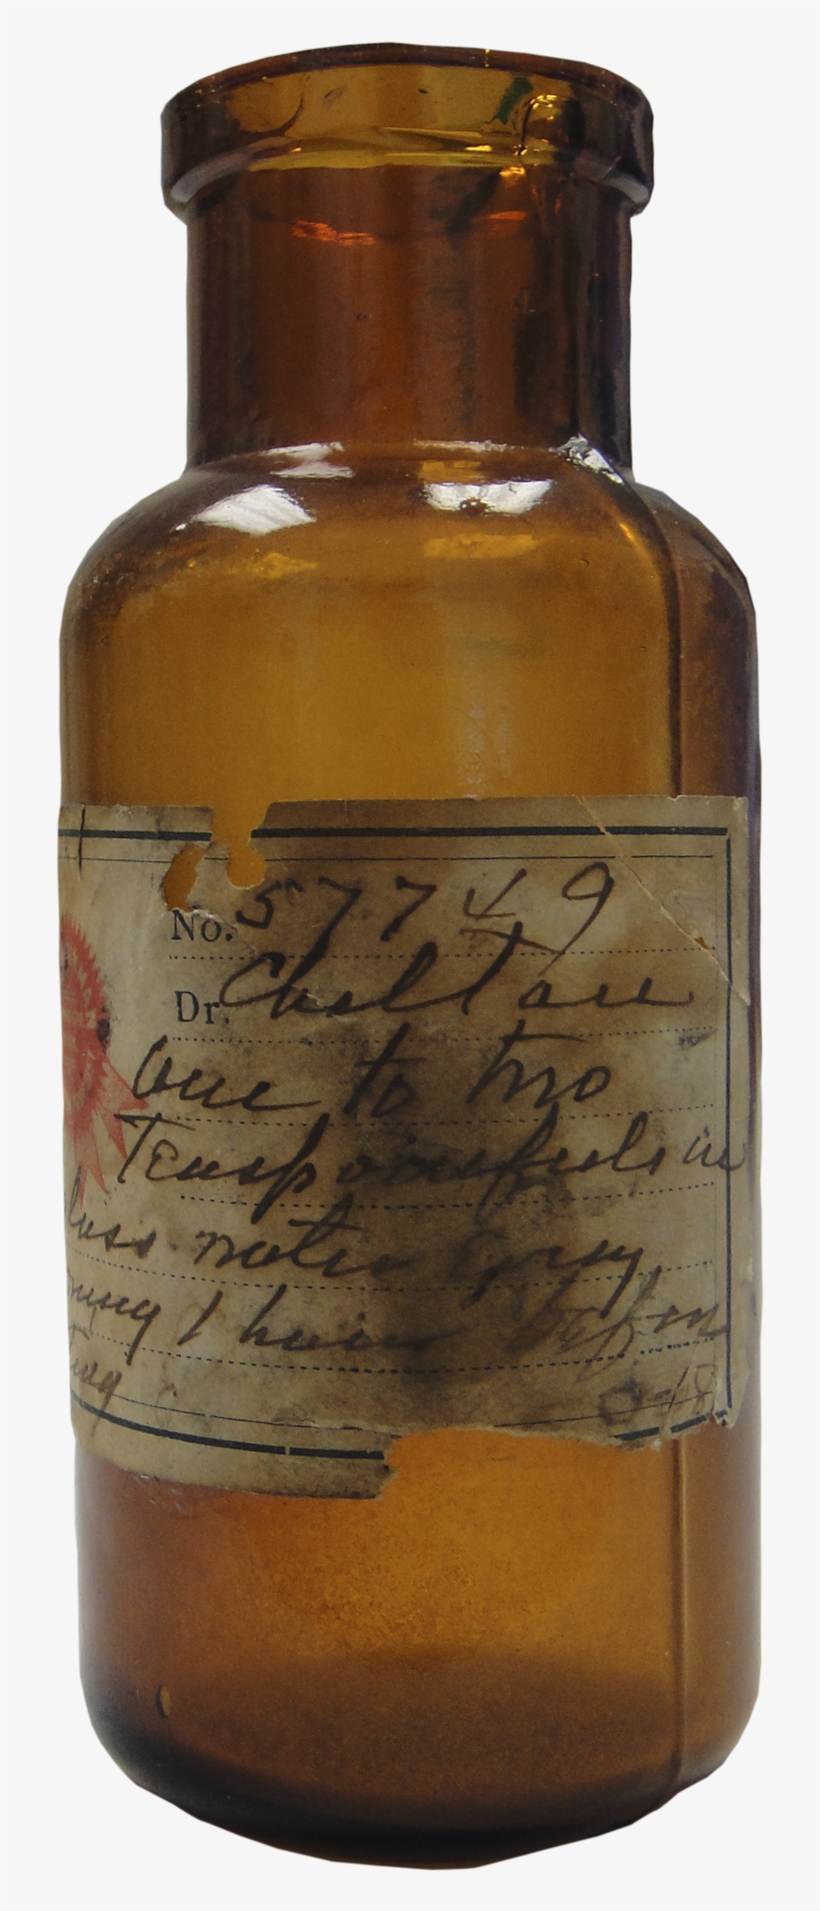 No. 57749
Dr.
One to two
Teaspoonfuls in
lass water every
rning 1 hour before
ting